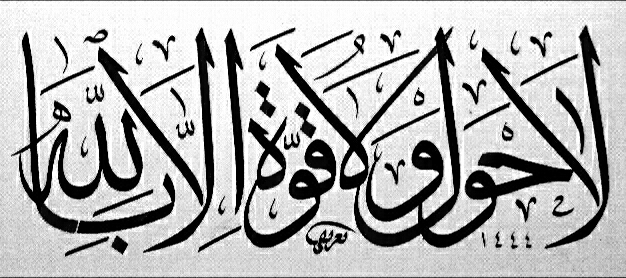 لا حول ولا قوة إلا بالله
١٤٤٤